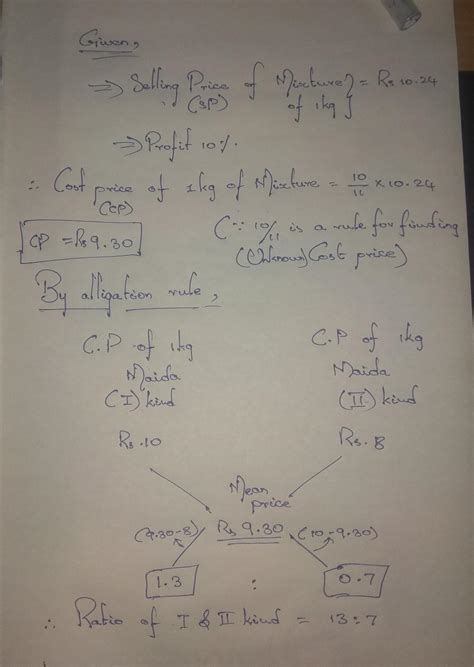 Given,
⇒ Selling Price of Mixture } = Rs 10.24
(SP) of 1kg
⇒ Profit 10%.
∴ Cost price of 1kg of Mixture = 10/11 × 10.24
(CP)
CP = Rs 9.30
(∵ 10/11 is a rule for finding
(Unknown) Cost price)
By alligation rule,
C.P of 1kg
Maida
(I) kind
Rs. 10
C.P of 1kg
Maida
(II) kind
Rs. 8
Mean
price
(9.30-8) Rs 9.30 (10-9.30)
1.3 : 0.7
∴ Ratio of I & II kind = 13:7